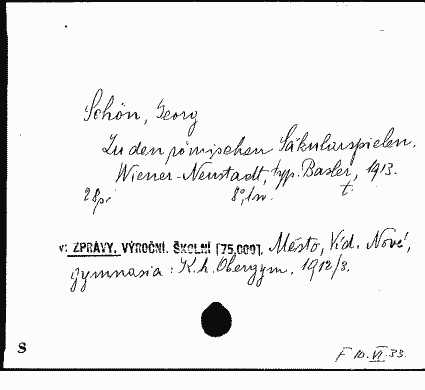 Schön, Georg
Zu den römischen Säkularspielen.
Wiener-Neustadt, typ. Basler, 1913.
28 p. 8°, 1 sv. t.
v: ZPRÁVY, VÝROČNÍ. ŠKOLNÍ [75,000]. Město, Víd. Nové,
gymnasia: K. k. Obergym. 1912/3.
S F 10. VI. 33.